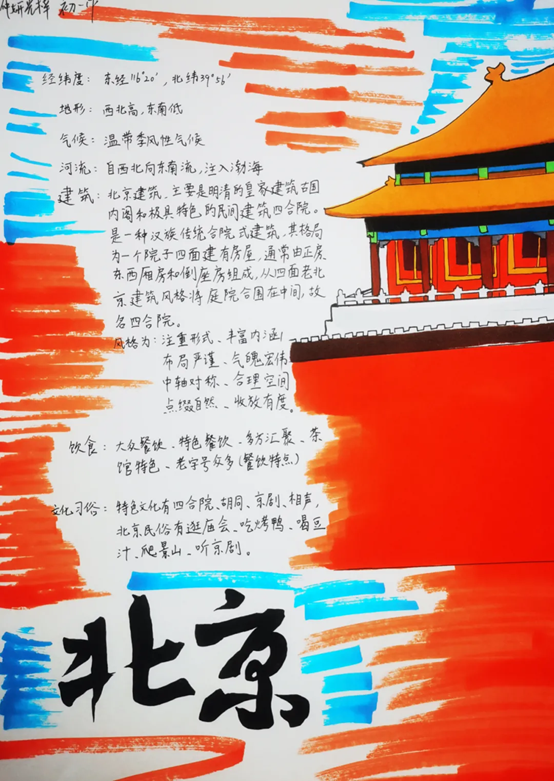 初一
经纬度：东经116°20′，北纬39°56′
地形：西北高，东南低
气候：温带季风性气候
河流：自西北向东南流，注入渤海
建筑：北京建筑，主要是明清的皇家建筑古国
内阁和极具特色的民间建筑四合院。
是一种汉族传统合院式建筑，其格局
为一个院子四面建有房屋，通常由正房
东西厢房和倒座房组成，从四面老北
京建筑风格将庭院合围在中间，故
名四合院。
风格为：注重形式、丰富内涵
布局严谨、气魄宏伟
中轴对称、合理空间
点缀自然、收放有度。
饮食：大众餐饮、特色餐饮、多方汇聚、茶
馆特色、老字号众多（餐饮特点）
文化习俗：特色文化有四合院、胡同、京剧、相声，
北京民俗有逛庙会、吃烤鸭、喝豆
汁、爬景山、听京剧。
北京